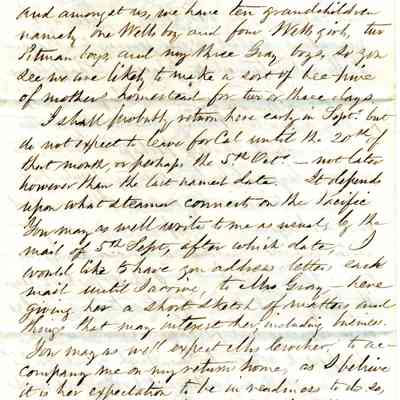 and amongst us, we have ten grandchildren
namely one Wells boy and four Wells girls, two
Pitman boys and my three Gray boys, so you
see we are likely to make a sort of bee-hive
of mothers homestead for two or three days.
I shall probably return here early in Sept. but
do not expect to leave for Cal until the 20th of
that month, or perhaps the 5th Octr. — not later
however than the last named date. It depends
upon what steamer connects on the Pacific
You may as well write to me as usual, by the
mail of 5th Sept, after which date, I
would like to have you address letters each
mail until I arrive, to Mrs Gray, here
giving her a short sketch of matters and
things that may interest her, including business.
You may as well expect Mrs to ac-
company me on my return home, as I believe
it is her expectation to be in readiness to do so,